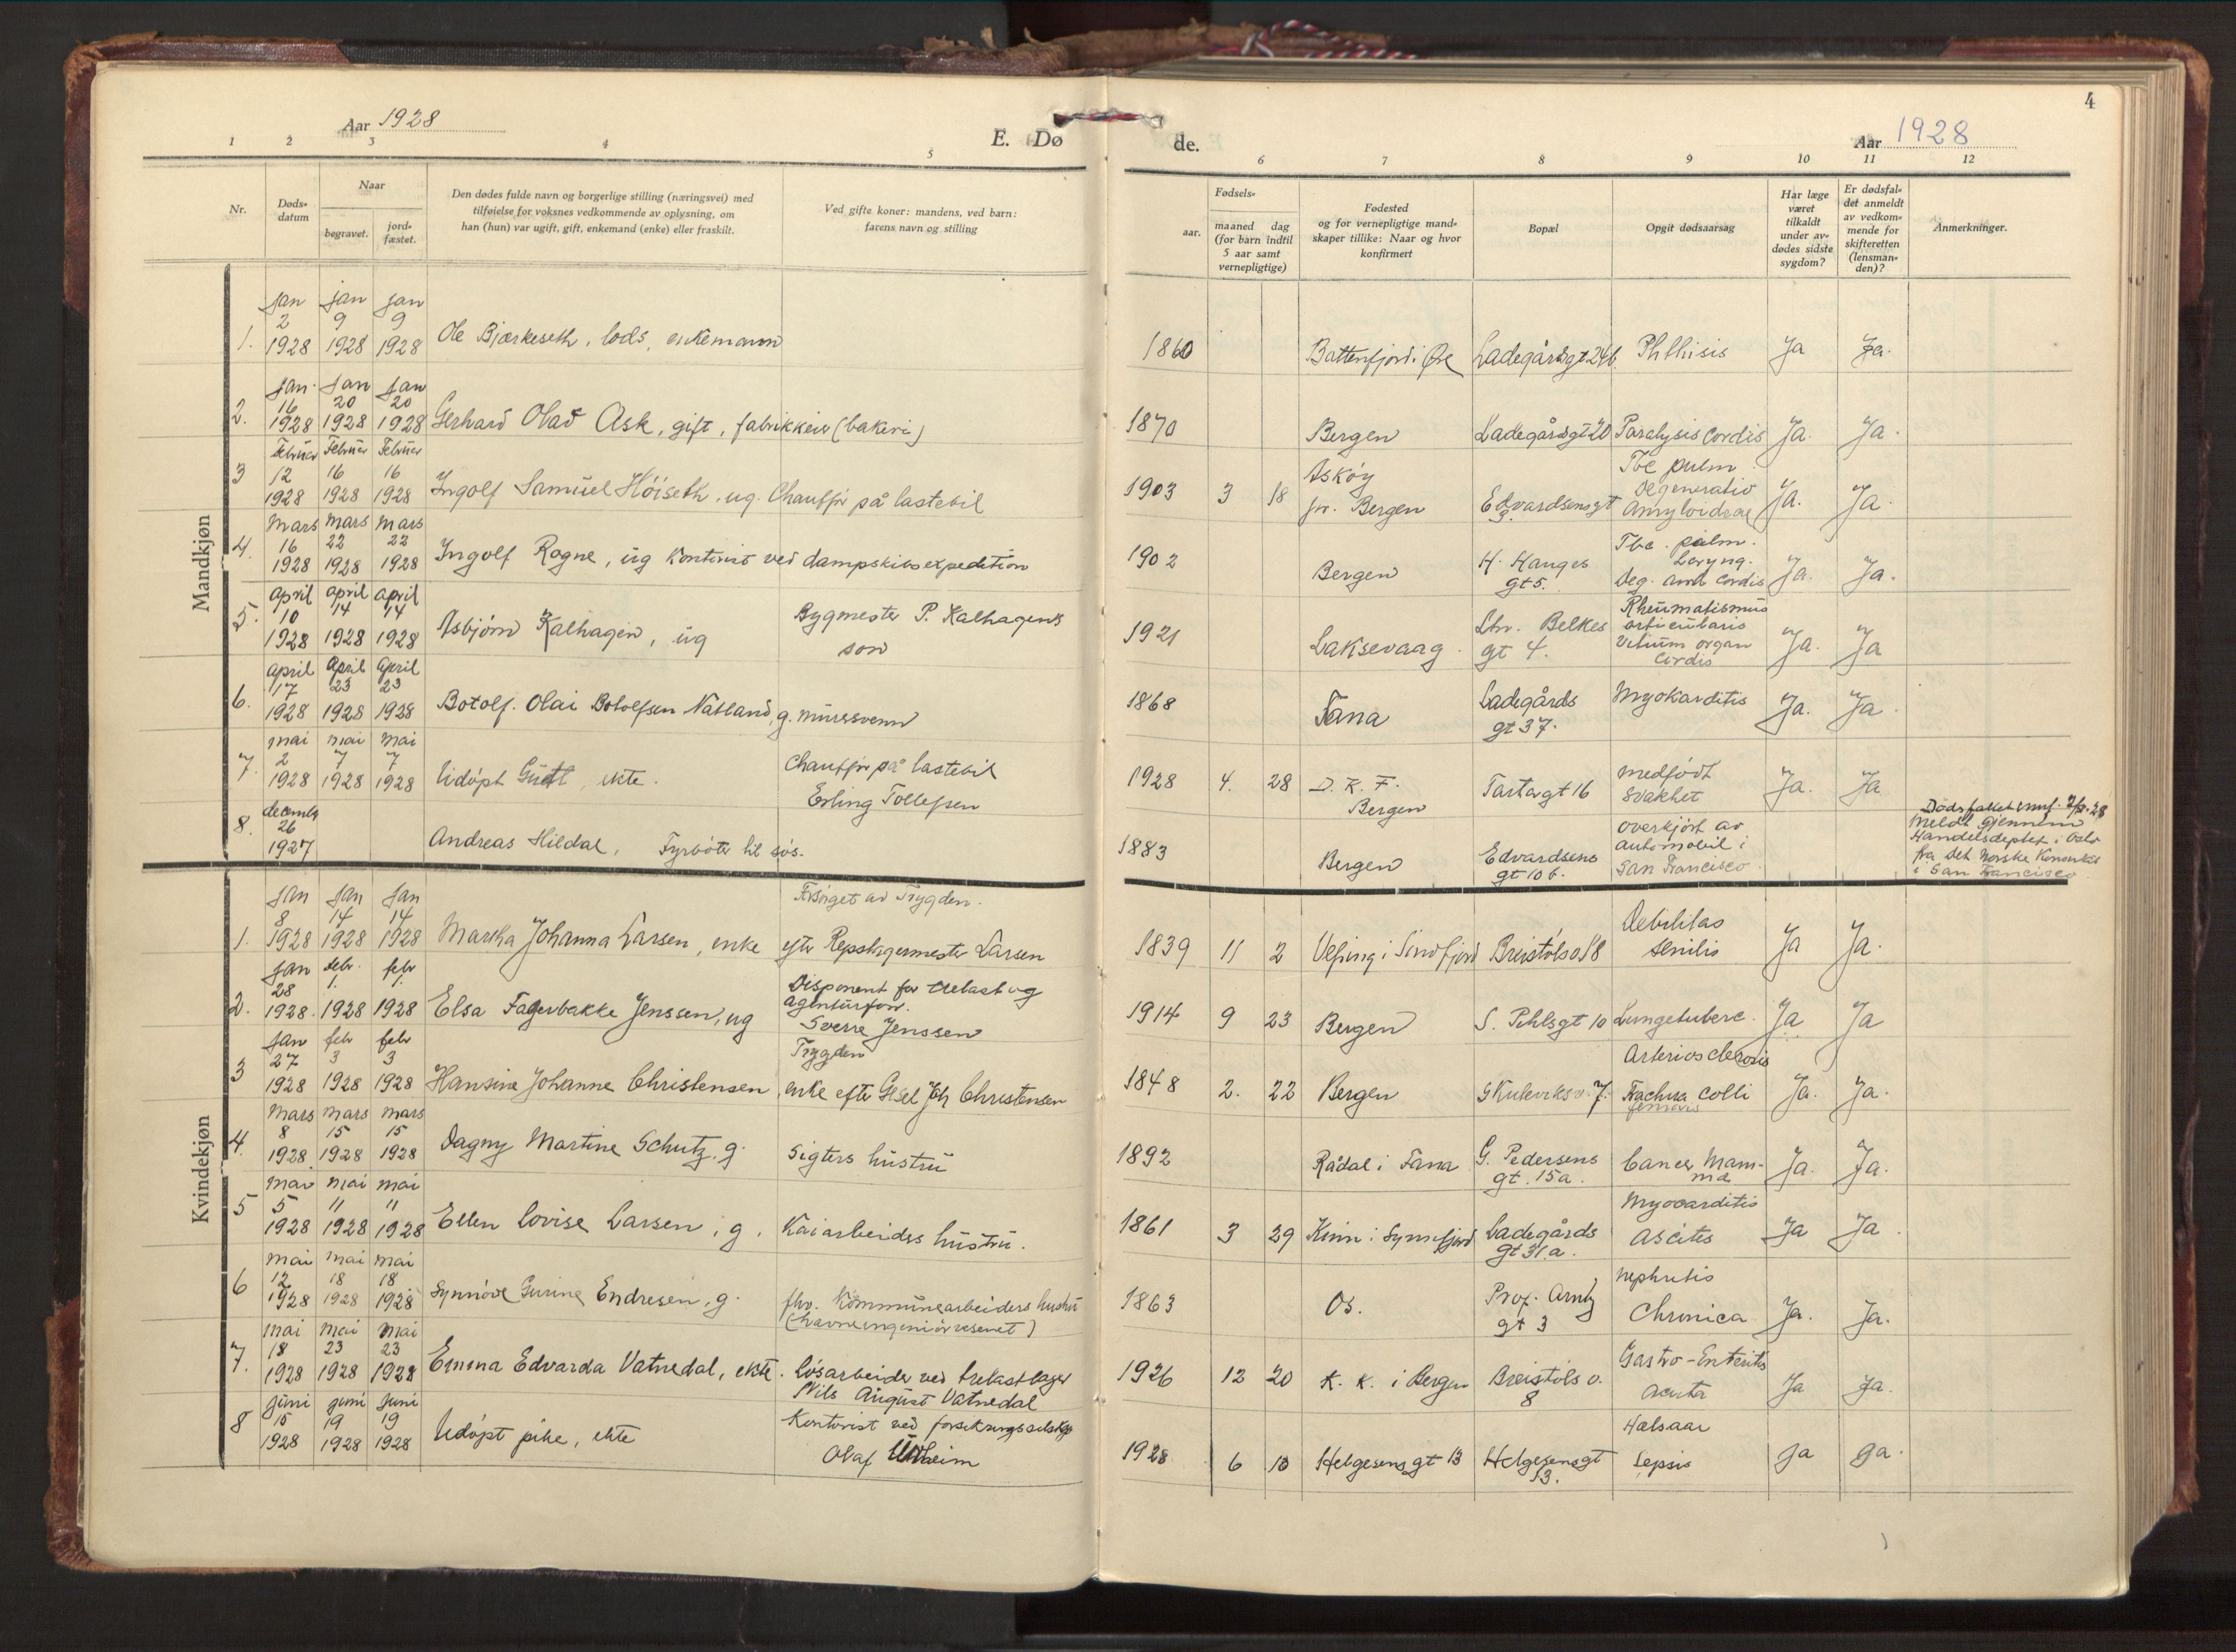 Aar 1928
E. Dø
1 2 3 4 5
Nr.
Døds-
datum
Naar
begravet.
jord-
fæstet.
Den dødes fulde navn og borgerlige stilling (næringsvei) med
tilføielse for voksnes vedkommende av oplysning, om
han (hun) var ugift, gift, enkemand (enke) eller fraskilt.
Ved gifte koner: mandens, ved barn:
farens navn og stilling
Mandkjøn
jan jan jan
2 9 9
1. 1928 1928 1928 Ole Bjerkeseth, lods, enkemann
jan. jan jan
16 20 20
2. 1928 1928 1928 Gerhard Olav Ask, gift, fabrikkeier (bakeri)
Februar Februar Februar
12 16 16
3 1928 1928 1928 Ingolf Samuel Höiseth, ug. Chauffør på lastebil
Mars Mars Mars
16 22 22
4. 1928 1928 1928 Ingolf Rogne, ug Kontorist ved dampskibsexpedition
april april april
10 14 14
5. 1928 1928 1928 Asbjørn Kalhagen, ug Bygmester P. Kalhagens
son
april April April
17 23 23
6. 1928 1928 1928 Botolf Olai Botolfsen Natland, g. muresvenn
mai mai mai
2 7 7
7. 1928 1928 1928 Udöpt Gutt, ekte. Chauffør på lastebil
Erling Tollefsen
decemb
26
8. 1927 Andreas Hildal, Fyrböter til sjøs.
Kvindekjøn
jan jan jan Forsörget av Trygden.
8 14 14
1. 1928 1928 1928 Martha Johanna Larsen, enke efter Repslagermester Larsen
jan febr. febr
28 1. 1. Disponent for trelast og
2. 1928 1928 1928 Elsa Fagerbakke Jenssen, ug agenturforr.
Sverre Jenssen
jan febr febr Trygden
27 3 3
3 1928 1928 1928 Hansine Johanne Christensen, enke efter Gsel Joh Christensen
Mars Mars Mars
8 15 15
4. 1928 1928 1928 Dagny Martine Schutz, g. Sigters hustru
mai mai mai
5 11 11
5 1928 1928 1928 Ellen Lovise Larsen, g. Kaiarbeiders hustru.
mai mai mai
12 18 18
6 1928 1928 1928 Synnöve Gurine Endresen, g. fhv. Kommunearbeiders hustru
(havneingeniörvesenet)
mai mai mai
18 23 23
7. 1928 1928 1928 Emma Edvarda Vatnedal, ekte. Løsarbeider ved trelastlager
Nils August Vatnedal
juni juni juni
15 19 19 Kontorist ved forsikringsselskap
8 1928 1928 1928 Udöpt pike, ekte
Olaf Utheim
4
de.
Aar 1928
6 7 8 9 10 11 12
Fødsels-
aar.
maaned dag
(for barn indtil
5 aar samt
vernepligtige)
Fødested
og for vernepligtige mand-
skaper tillike: Naar og hvor
konfirmert
Bopæl
Opgit dødsaarsag
Har læge
været
tilkaldt
under av-
dødes sidste
sygdom?
Er dødsfal-
det anmeldt
av vedkom-
mende for
skifteretten
(lensman-
den)?
Anmerkninger.
1860 Battenfjord i Øre Ladegårdsgt 24b. Phthisis Ja Ja.
1870 Bergen Ladegårdsgt 20 Paralysis cordis Ja. Ja.
Askøy Tbc pulm.
1903 3 18 Degeneratio
pr. Bergen Edvardsensgt amyloidae Ja. Ja.
3.
Tbc. pulm.
1902 Bergen H. Hauges Laryng.
gt 5. Deg. amh cordis Ja. Ja.
Rheumatismus
1921 Laksevaag. Lhr. Belkes articularis
gt 4. Vitium organ Ja. Ja
cordis
1868 Fana Ladegårds Myokarditis Ja. Ja.
gt 37.
1928 4. 28 D. K. F. Tartargt 16 medfödt Ja. Ja
Bergen svakhet
1883 Bergen Edvardsens overkjört av
gt 10 b. automobil i
San Francisco.
Dødsfallet
Meldt gjennem
Handelsdeptet i Oslo
fra det Norske Konsulat
i San Francisco
1839 11 2 Vefring i Sundfjord Breistölsv 8 Debilitas Ja Ja.
senilis
1914 9 23 Bergen S. Pihlsgt 10 Lungetuberc. Ja Ja
Arteriosclerosis
1848 2. 22 Bergen 7. Fractura colli Ja. Ja.
femoris
1892 Rådal i Fana G. Pedersens Cancer Mam- Ja. Ja.
gt. 15a. ma
Myocarditis
1861 3 29 Kinn i Synnfjord Ladegårds Ascites Ja Ja
gt 31a.
nephritis
1863 Os. Prof. Arntz Chronica Ja. Ja.
gt 3
Gastro-Enteritis
1926 12 20 K. K. i Bergen Breistöls v. acuta Ja Ja.
8
Halsaar
1928 6 10 Helgesensgt 13 Helgesensgt Sepsis Ja Ja.
13.